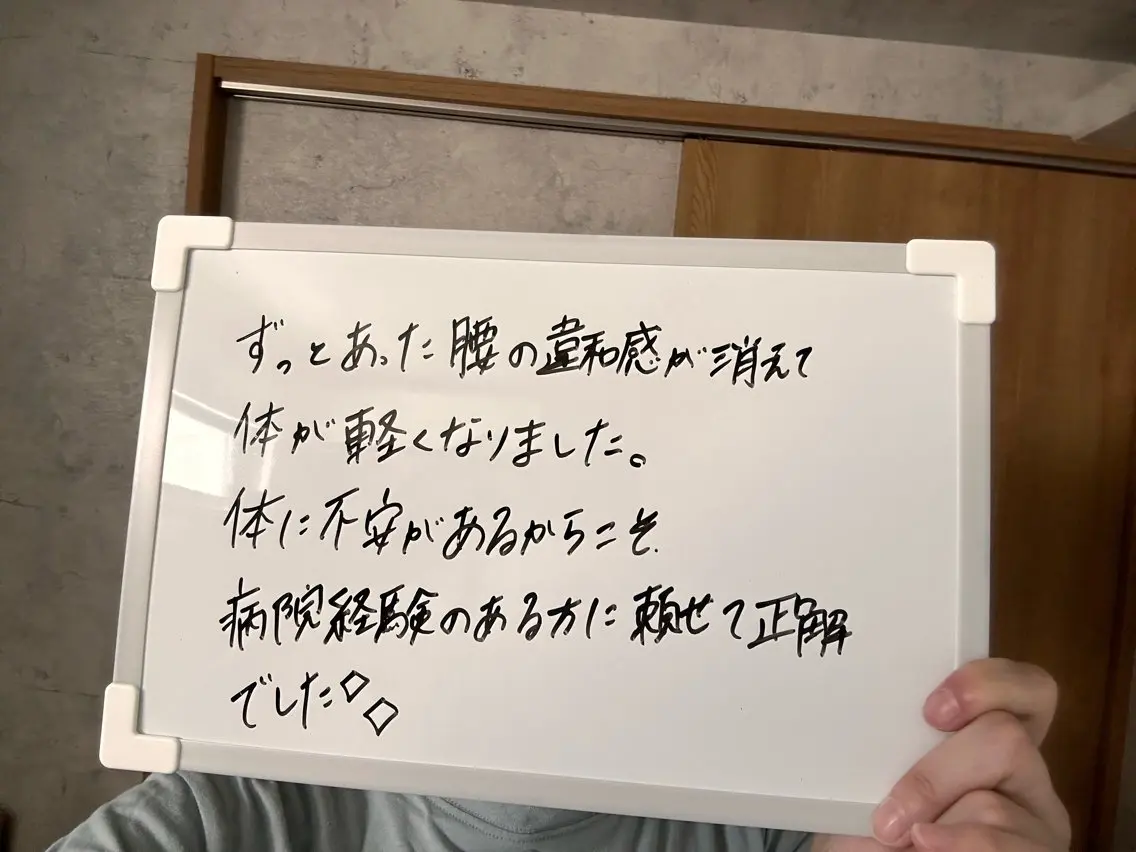 ずっとあった腰の違和感が消えて
体が軽くなりました。
体に不安があるからこそ
病院経験のある方に頼せて正解
でした◇◇